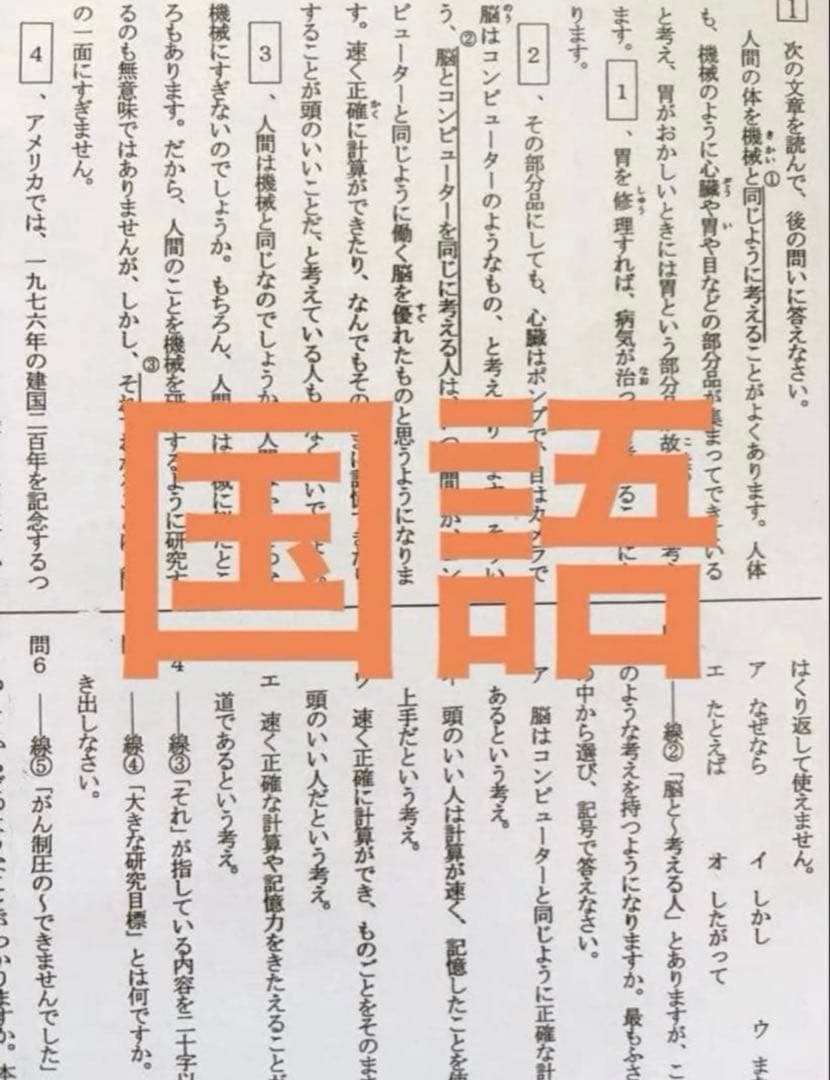 1 次の文章を読んで、後の問いに答えなさい。
人間の体を機械と同じように考えることがよくあります。人体
も、機械のように心臓や胃や目などの部分品が集まってできている
と考え、胃がおかしいときには胃という部分品
ます。 1 、胃を修理すれば、病気が治
ります。
2 、その部分品にしても、心臓はポンプで、目はカメラで
脳はコンピューターのようなもの、と考え
う、脳とコンピューターを同じに考える人は、
ピューターと同じように働く脳を優れたものと思うようになりま
す。速く正確に計算ができたり、なんでもその
することが頭のいいことだ、と考えている人も
3 、人間は機械と同じなのでしょうか。
機械にすぎないのでしょうか。もちろん、人間
ろもあります。だから、人間のことを機械を研究するように研究す
るのも無意味ではありませんが、しかし、それ
の一面にすぎません。
4 、アメリカでは、一九七六年の建国二百年を記念するつ
国語
はくり返して使えません。
ア なぜなら イ しかし ウ また
エ たとえば オ したがって
――線②「脳と～考える人」とありますが、こ
のような考えを持つようになりますか。最もふさ
の中から選び、記号で答えなさい。
ア 脳はコンピューターと同じように正確な計
あるという考え。
イ 頭のいい人は計算が速く、記憶したことを使
上手だという考え。
ウ 速く正確に計算ができ、ものごとをそのまま
頭のいい人だという考え。
エ 速く正確な計算や記憶力をきたえることが
道であるという考え。
4 ――線③「それ」が指している内容を二十字以
――線④「大きな研究目標」とは何ですか。
き出しなさい。
問6 ――線⑤「がん制圧の～できませんでした」